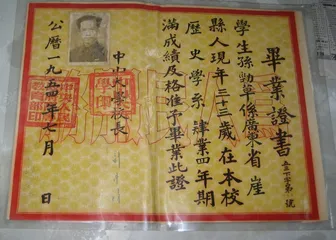 畢業證書
學生孫勁草係廣東省崖
縣人現年三十三歲在本校
歷史學系肄業四年期
滿成績及格准予畢業此證
中山大學校長
公曆一九五四年七月 日